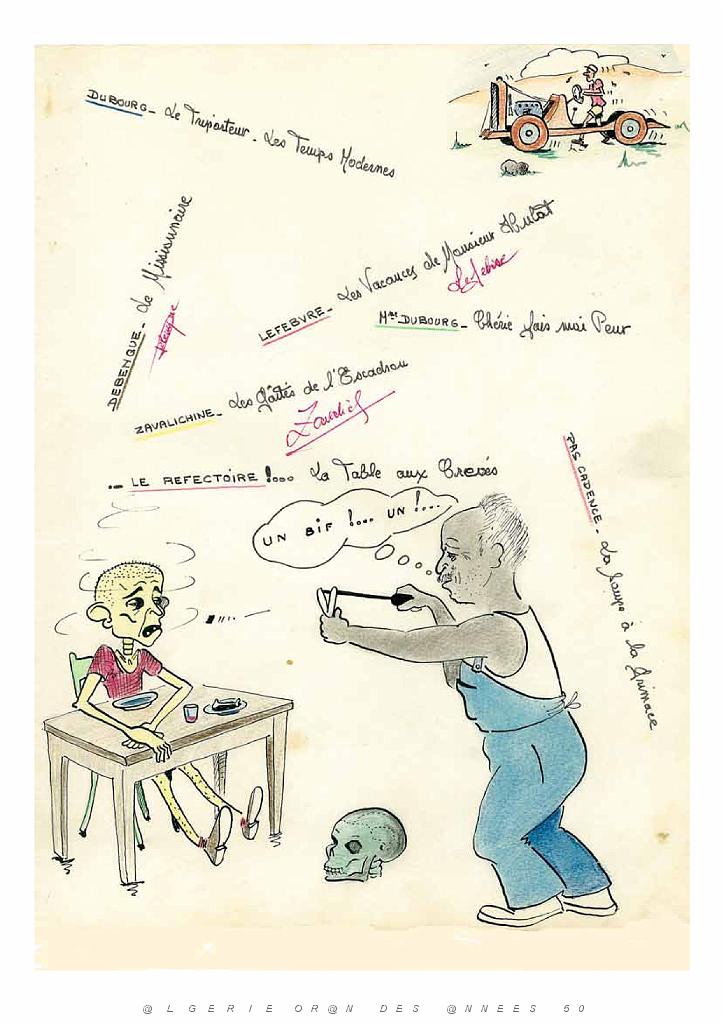 DUBOURG - Le Triporteur - Les Temps Modernes
DEBENQUE - Le Missionnaire
LEFEBVRE - Les Vacances de Monsieur Hulot
Lefebvre
Mme DUBOURG - Chérie fais moi Peur
ZAVALICHINE - Les Gaîtés de l'Escadron
... LE REFECTOIRE !.... La Table aux Crevés
PAS CADENCE - La soupe à la Grimace
UN BIF !... UN !...
@LGERIE OR@N DES @NNEES 50